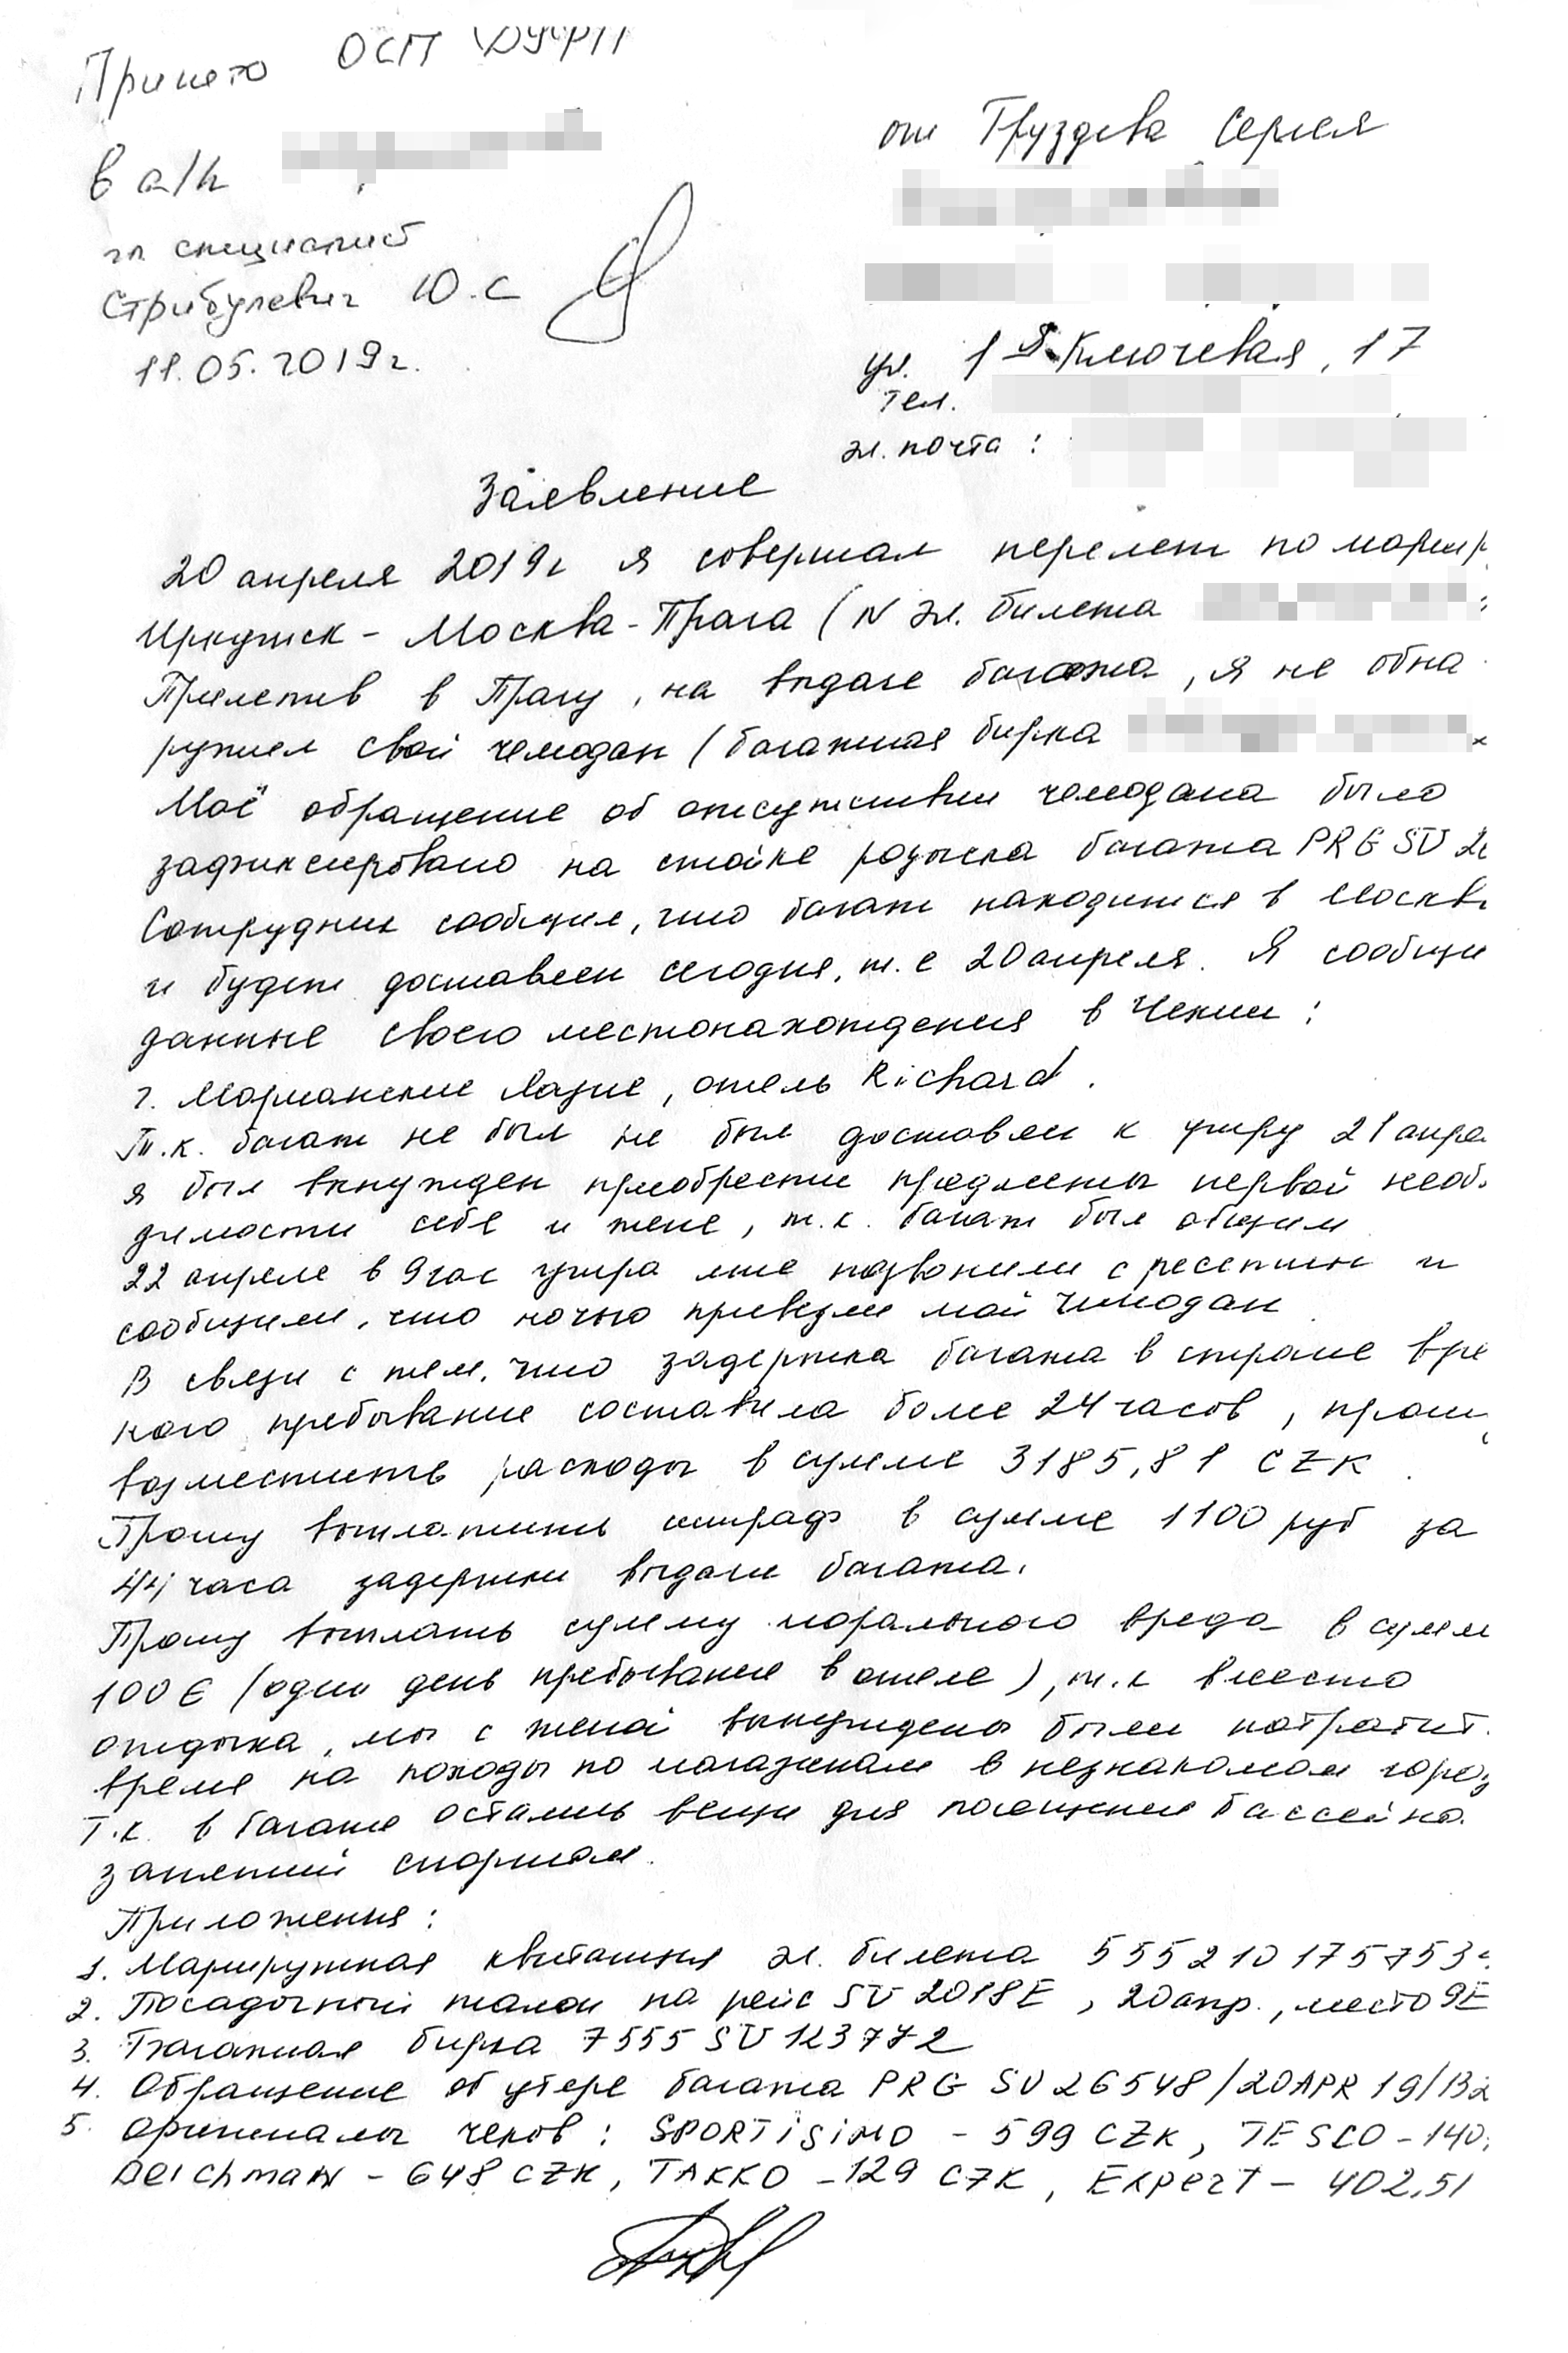 Принето ОСП
в а/к
гл специалист
Стрибулевич Ю.С
11.05.2019г.
от Груздева Сергея
ул. 1я Ключевая, 17
тел.
эл. почта :
Заявление
20 апреля 2019г я совершал перелет по маршр
Иркутск - Москва - Прага ( N эл. билета
Прилетив в Прагу, на выдаче багажа, я не обна
ружил свой чемодан ( багажная бирка
Моё обращение об отсутствии чемодана было
зафиксировано на стойке розыска багажа PRG SU 26
Сотрудник сообщил, что багаж находится в Москв
и будет доставлен сегодня, т.е 20 апреля. Я сообщи
данные своего местонахождения в Чехии :
г. Марианские Лазне, отель Richard.
Т.к. багаж не был не был доставлен к утру 21 апре
я был вынужден приобрести предметы первой необ
димости себе и жене, т.к. багаж был общим
22 апреля в 9 час утра мне позвонили с ресепшн и
сообщили, что ночью привезли мой чемодан
В связи с тем, что задержка багажа в стране вре
ного пребывание составила более 24 часов, прош
возместить расходы в сумме 3185,81 CZK.
Прошу выплатить штраф в сумме 1100 руб за
44 часа задержки выдачи багажа.
Прошу выплать сумму морального вреда в сумм
100 € ( один день пребывание в отеле ), т.к вместо
отдыха, мы с женой вынуждены были потратит
время на походы по магазинам в незнакомом город
Т.к. в багаже остались вещи для посещения бассейна.
занятий спортом.
Приложения :
1. Маршрутная квитанция эл. билета 555210175753
2. Посадочный талон на рейс SU 2018E, 20 апр., место 9E
3. Багажная бирка 7555 SU 123772
4. Обращение об утере багажа PRG SU 26548/20APR 19/132
5. Оригиналы чеков : SPORTiSiMO - 599 CZK, TESCO - 140
Deichmann - 648 CZK, TAKKO - 129 CZK, Expert - 402,51